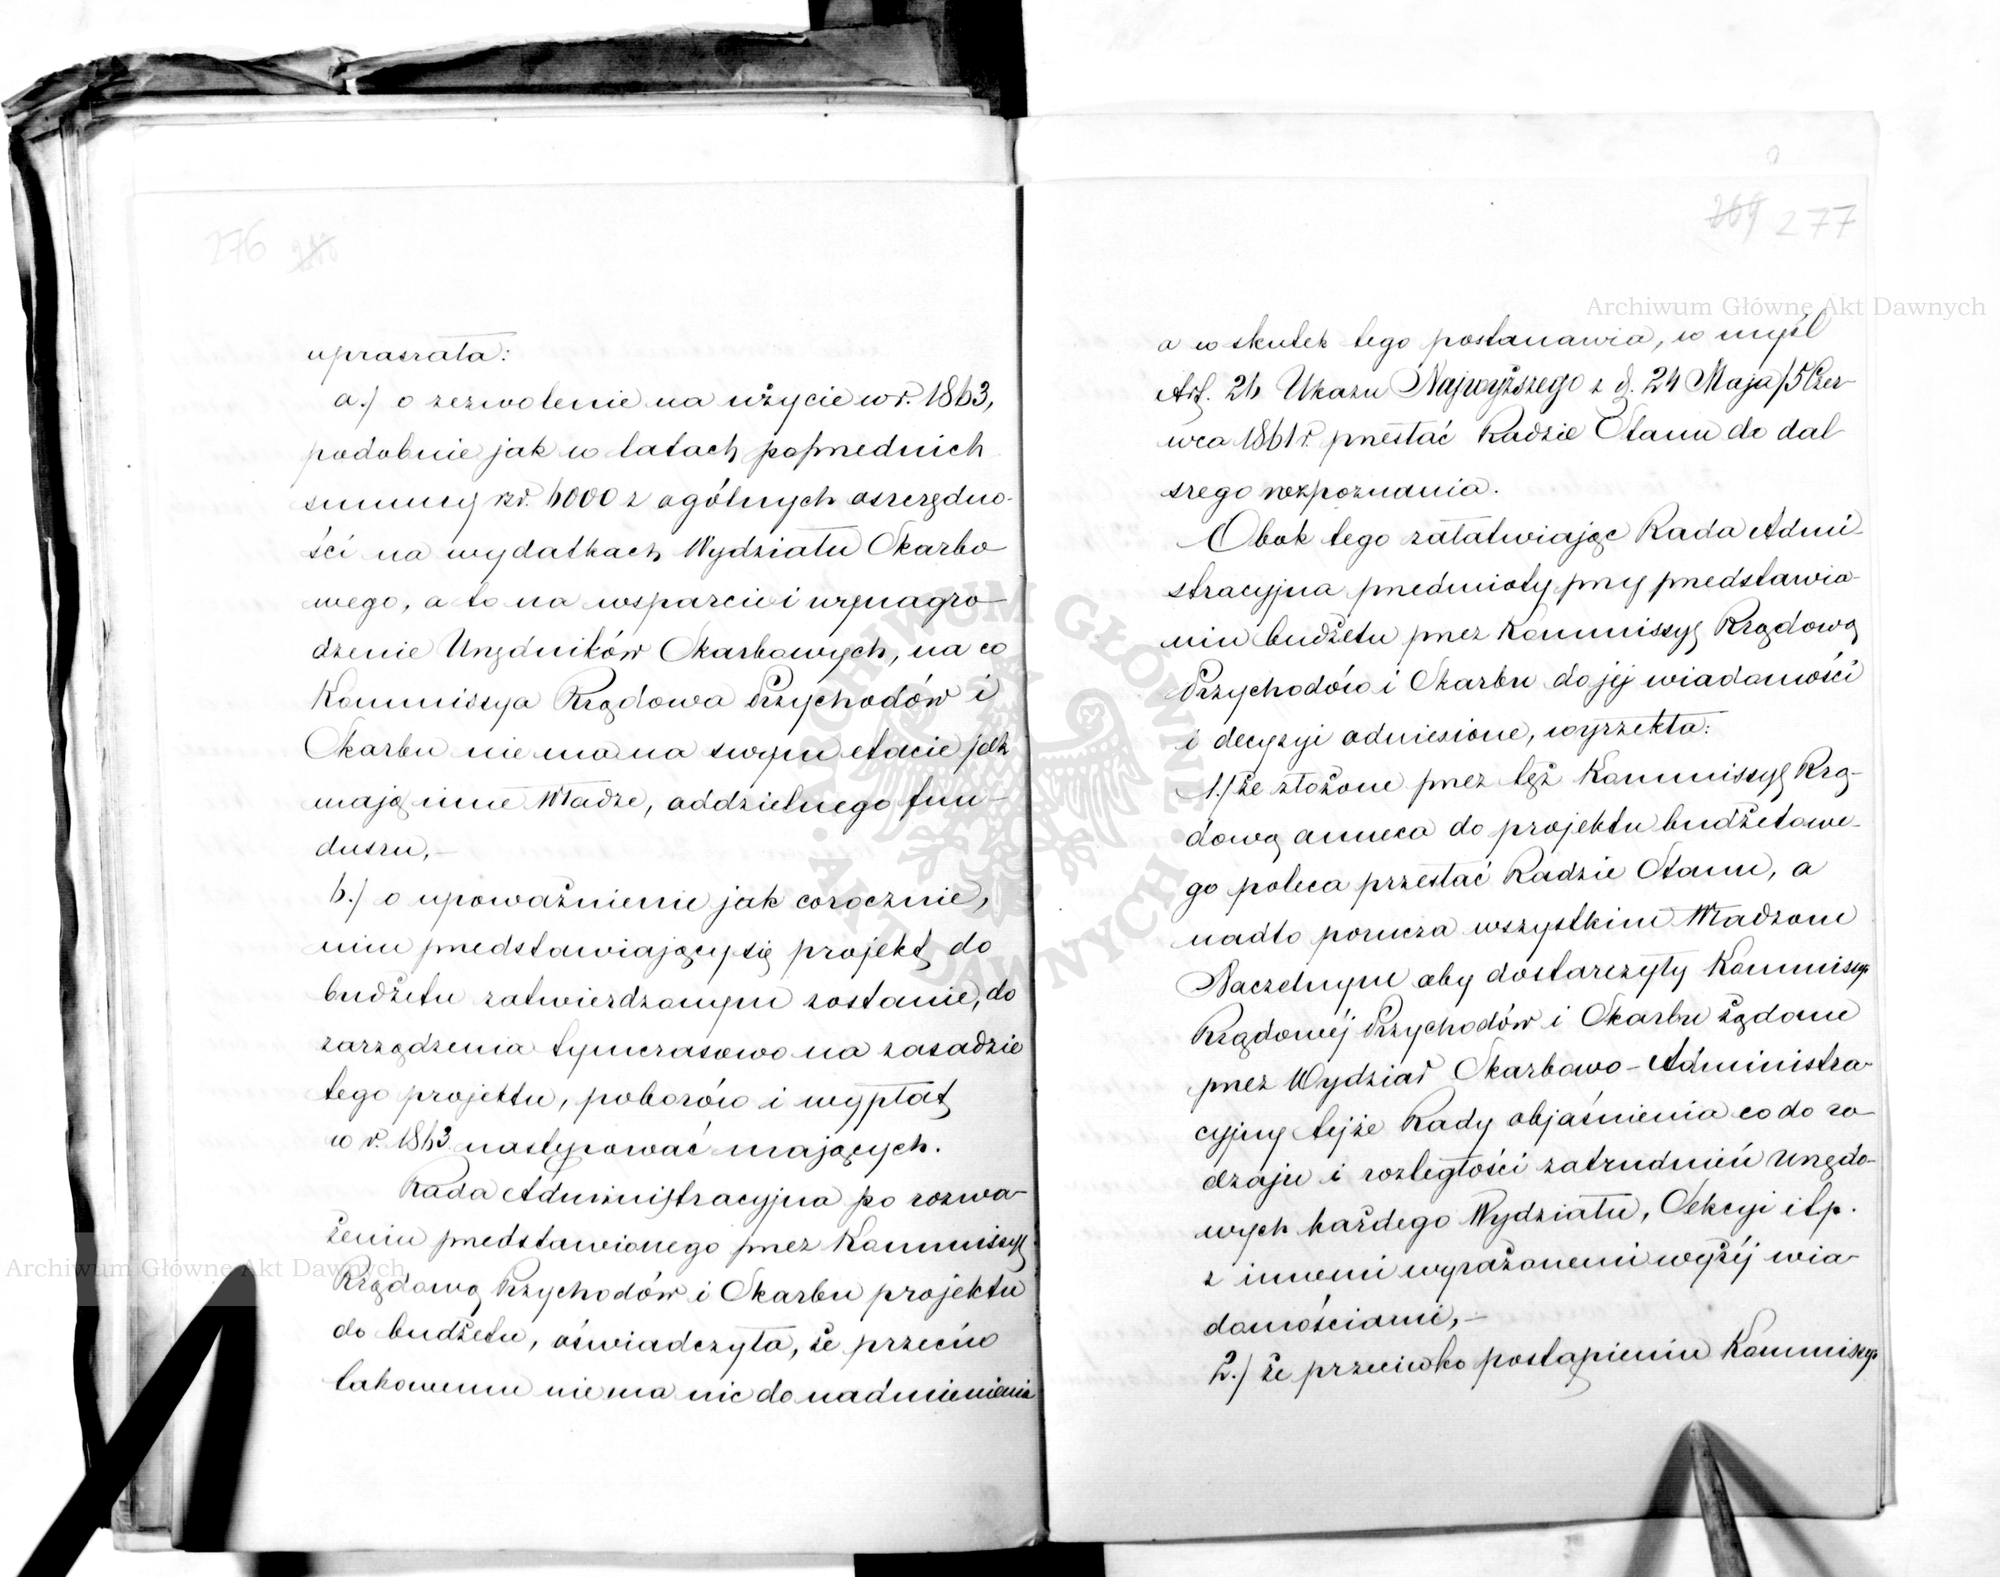 276
upraszała:
a.) o zezwolenie na użycie w r. 1863,
podobnie jak w latach poprzednich
summy rs. 6000 z ogólnych oszczędno-
ści na wydatkach Wydziału Skarbo
wego, a to na wsparcie i wynagro
dzenie Urzędników Skarbowych, na co
Kommissya Rządowa Przychodów i
Skarbu nie ma na swym etacie jak
mają inne Władze, oddzielnego fun-
duszu,-
b.) o upoważnienie jak corocznie,
nim przedstawiający się projekt do
budżetu zatwierdzonym zostanie, do
zarządzenia tymczasowo na zasadzie
tego projektu, poborów i wypłat
w r. 1863 następować mających.
Rada Administracyjna po rozwa-
żeniu przedstawionego przez Kommissyę
Rządową Przychodów i Skarbu projektu
do budżetu, oświadczyła, że przeciw
takowemu nie ma nic do nadmienienia
269 277
a w skutek tego postanawia, w myśl
Art. 26 Ukazu Najwyższego z d. 24 Maja/5 Czer-
wca 1861 r. przesłać Radzie Stanu do dal
szego rozpoznania.
Obok tego załatwiając Rada Admi-
stracyjna przedmioty przy przedstawia-
niu budżetu przez Kommissyę Rządową
Przychodów i Skarbu do jej wiadomości
i decyzyi odniesione, wyrzekła:
1.) że złożone przez tęż Kommissyę Rzą-
dową annexa do projektu budżetowe-
go poleca przesłać Radzie Stanu, a
nadto porucza wszystkim Władzom
Naczelnym aby dostarczyły Kommissyi
Rządowéj Przychodów i Skarbu żądane
przez Wydział Skarbowo-Administra-
cyjny tejże Rady objaśnienia co do ro-
dzaju i rozległości zatrudnień Urzędo-
wych każdego Wydziału, Sekcyi i t.p.
z innemi wyrażonemi wyżéj wia-
domościami,-
2.) że przeciwko postąpieniu Kommissyi
Archiwum Główne Akt Dawnych
Archiwum Główne Akt Dawnych
ARCHIWUM GŁÓWNE AKT DAWNYCH